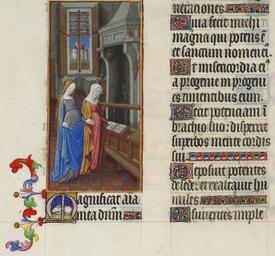 Magnificat aīa
mea dnm̄
nerationes.
Quia fecit michi
magna qui potens ē
et sanctum nomen ei.
Et misericordia ei⁹
a progenie in progeni
es timentibus eum.
Fecit potenciam in
brachio suo: disperscit
superbos mente cordis
sui.
Deposuit potentes
de sede: et exaltauit hu
miles
Esurientes imple